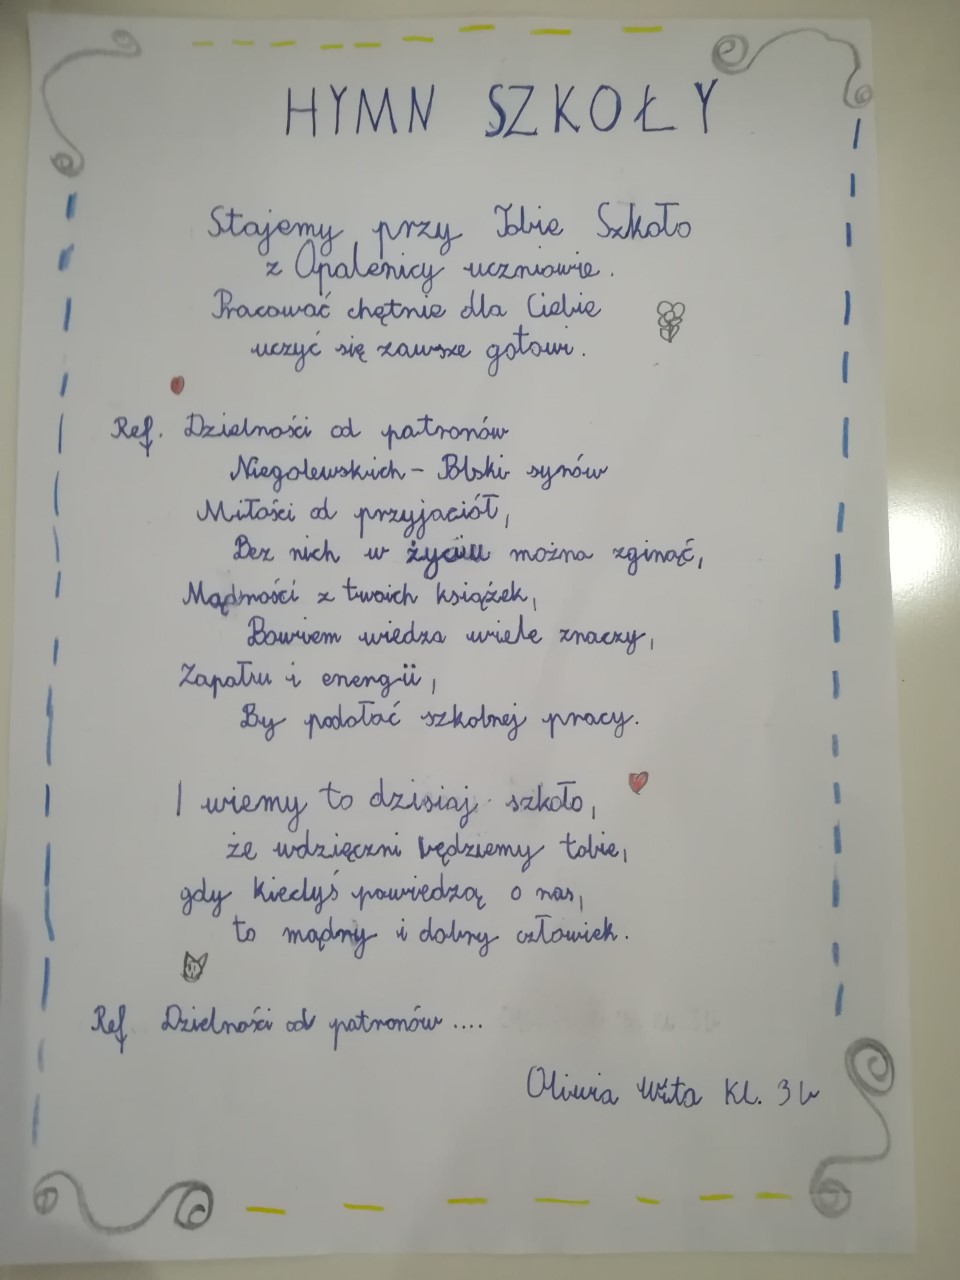 HYMN SZKOŁY
Stajemy przy Tobie Szkoło
z Opalenicy uczniowie.
Pracować chętnie dla Ciebie
uczyć się zawsze gotowi.
Ref. Dzielności od patronów
Niegolewskich - Polski synów
Miłości od przyjaciół,
Bez nich w życiu można zginąć,
Mądrości z twoich książek,
Bowiem wiedza wiele znaczy,
Zapału i energii,
By podołać szkolnej pracy.
I wiemy to dzisiaj szkoło,
że wdzięczni będziemy tobie,
gdy kiedyś powiedzą o nas,
to mądry i dobry człowiek.
Ref Dzielności od patronów ....
Oliwia Wita Kl. 3